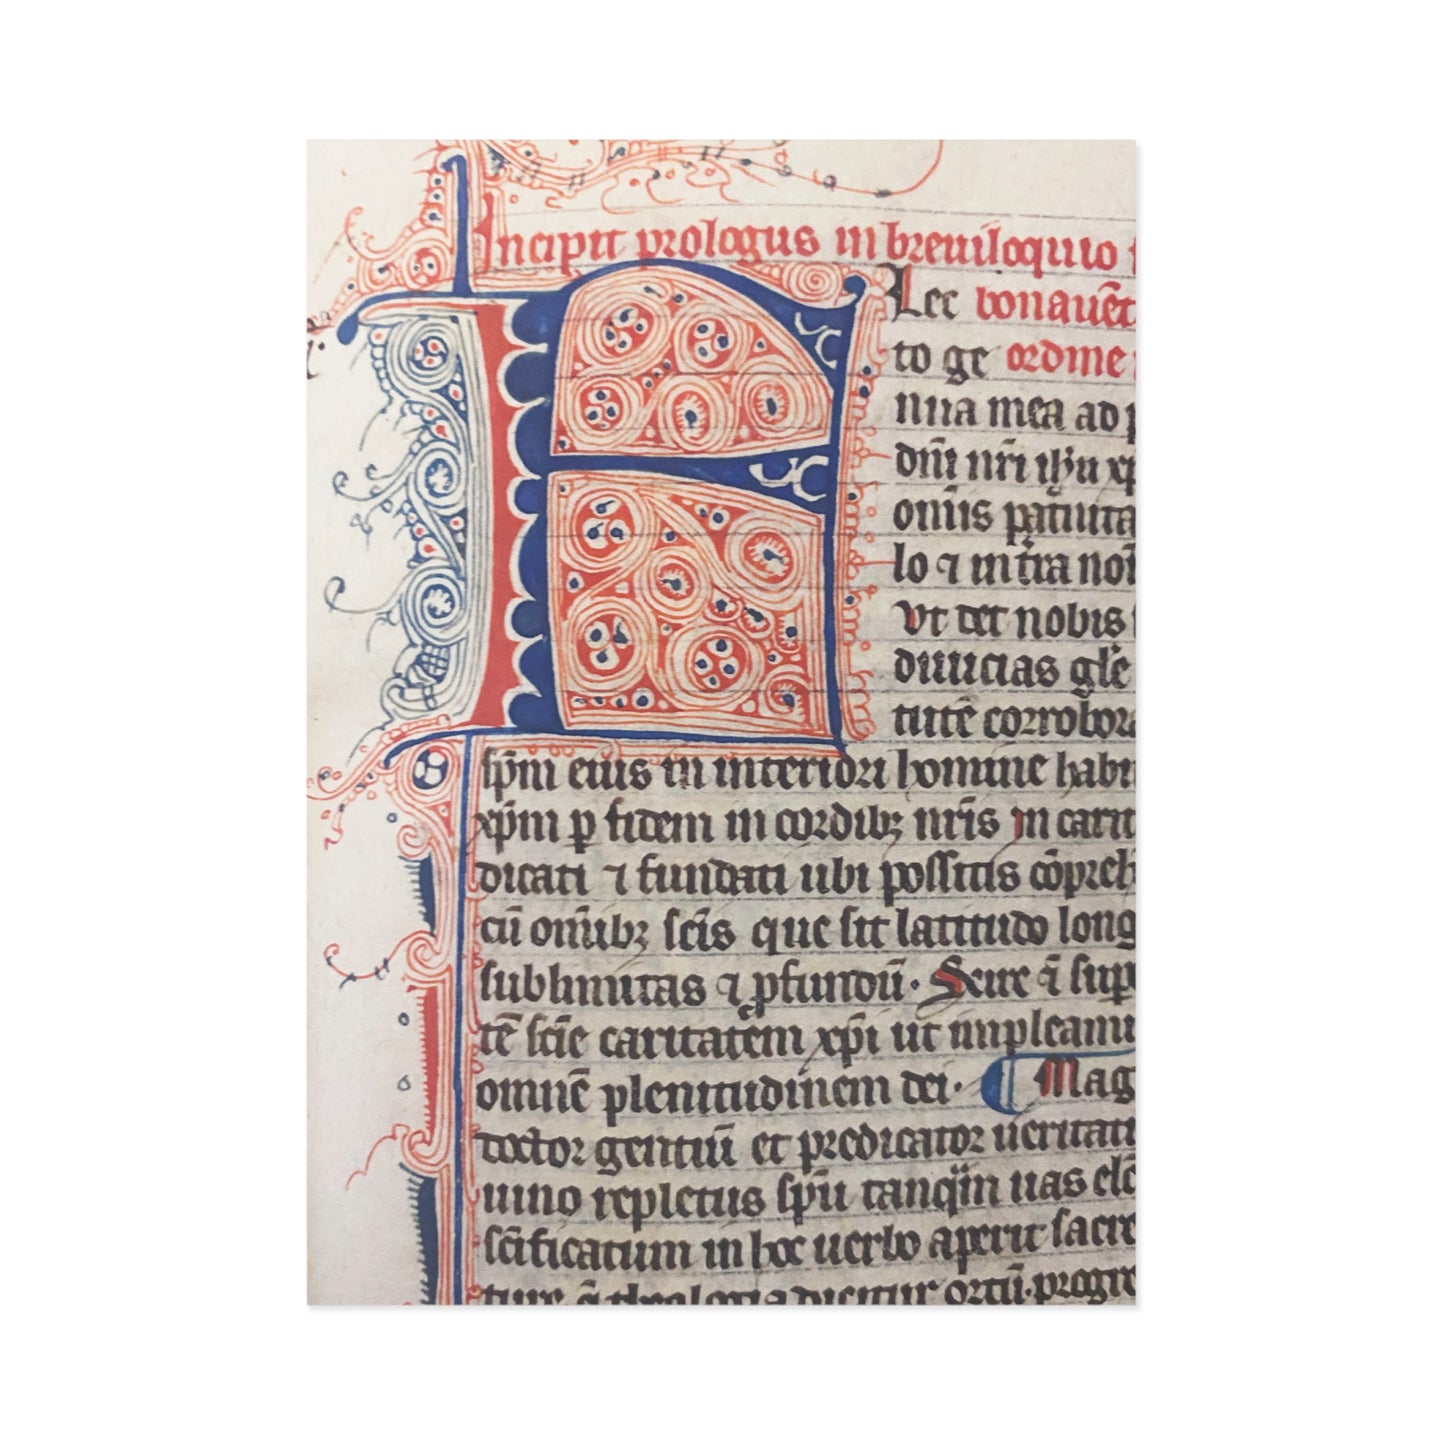 Incipit prologus in breuiloquio
Lec bonauēt
to ge ordine
nua mea ad p
dn̄i nr̄i ihū xp
om̄is pat̄nita
lo ⁊ in tr̄a no
vt det nobis
diuicias gl̄e
tutē corrobora
sp̄m eius in interiori homine habi
xp̄m p̱ fidem in cordibꝫ nr̄is in carit
dicati ⁊ fundati ubi possitis cōpreh
cū om̄ibꝫ sc̄is que sit latitudo long
sublimitas ⁊ ꝓfundū· Scire ⁊̄ sup
tē scīe caritatem xp̄i ut impleami
omnē plenitudinem dei· ¶ Mag
doctor gentiū et predicator ueritati
uino repletus sp̄u tanq̄ȝ uas elc̄
sc̄ificatum in hoc uerbo aperit sacre
ture q̄ theologia dicitur ortū·progre